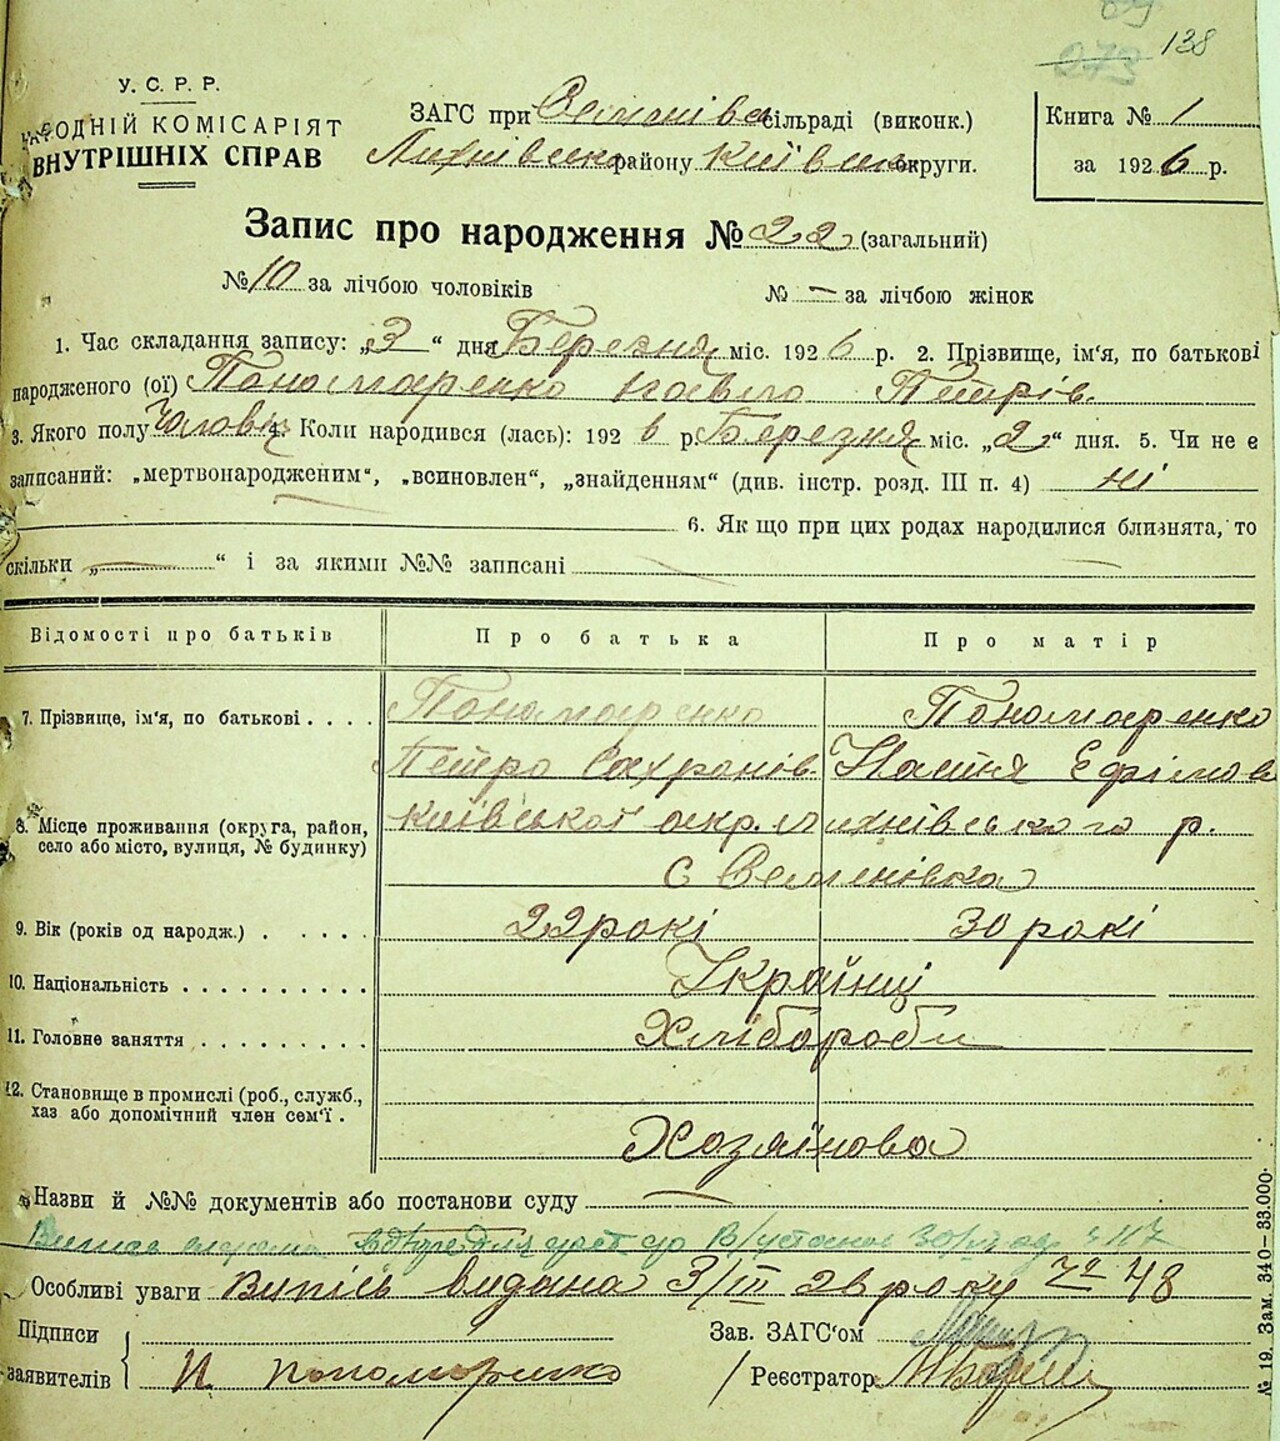 138
273
У. С. Р. Р.
НАРОДНІЙ КОМІСАРІЯТ
ВНУТРІШНІХ СПРАВ
ЗАГС при Семенівск сільраді (виконк.)
Лихнівськ району Київськ округи.
Книга № 1
за 1926 р.
Запис про народження № 22 (загальний)
№ 10 за лічбою чоловіків № — за лічбою жінок
1. Час складання запису: „3“ дня Березня міс. 1926 р. 2. Прізвище, ім'я, по батькові
народженого (ої) Пономаренко Павло Петрів.
3. Якого полу Чоловіч 4. Коли народився (лась): 1926 р. Березня міс. „2“ дня. 5. Чи не є
записаний: „мертвонародженим“, „всиновлен“, „знайденням“ (див. інстр. розд. III п. 4) ні
6. Як що при цих родах народилися близнята, то
скільки „—“ і за якими №№ записані
Відомості про батьків Про батька Про матір
7. Прізвище, ім'я, по батькові . . . . Пономаренко Пономаренко
Петро Сахронів. Настя Єфімов
8. Місце проживання (округа, район, Київської окр. Лихнівського р.
село або місто, вулиця, № будинку)
с Семенівка
9. Вік (років од народж.) . . . . . 22 рокі 30 рокі
10. Національність . . . . . . . . . . Українці
11. Головне заняття . . . . . . . . . Хлібороби
12. Становище в промислі (роб., служб.,
хаз або допомічний член сем'ї .
Хозяїнова
Назви й №№ документів або постанови суду —
Випись
Особливі уваги Випісь видана 3/III 26 року № 48
Підписи
заявителів П Пономоренко
Зав. ЗАГС'ом
Реєстратор
№ 19. Зам. 340—33.000.